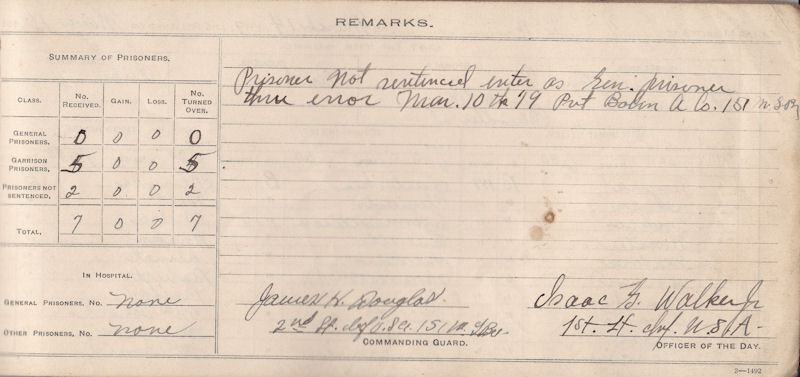 REMARKS.
SUMMARY OF PRISONERS.
CLASS. No. RECEIVED. GAIN. LOSS. No. TURNED OVER.
GENERAL PRISONERS, 0 0 0 0
GARRISON PRISONERS, 5 0 0 5
PRISONERS NOT SENTENCED, 2 0 0 2
TOTAL. 7 0 0 7
IN HOSPITAL.
GENERAL PRISONERS, No. none
OTHER PRISONERS, No. none
Prisoner not sentenced enter as Gen. prisoner
thru error Mar. 10 th 19 Pvt A Co. 151
James H. Douglas.
2nd Lt. Inf U.S.A. 151
COMMANDING GUARD.
Isaac G. Walker Jr
1st. Lt. Inf. U.S.A.
OFFICER OF THE DAY.
3—1492